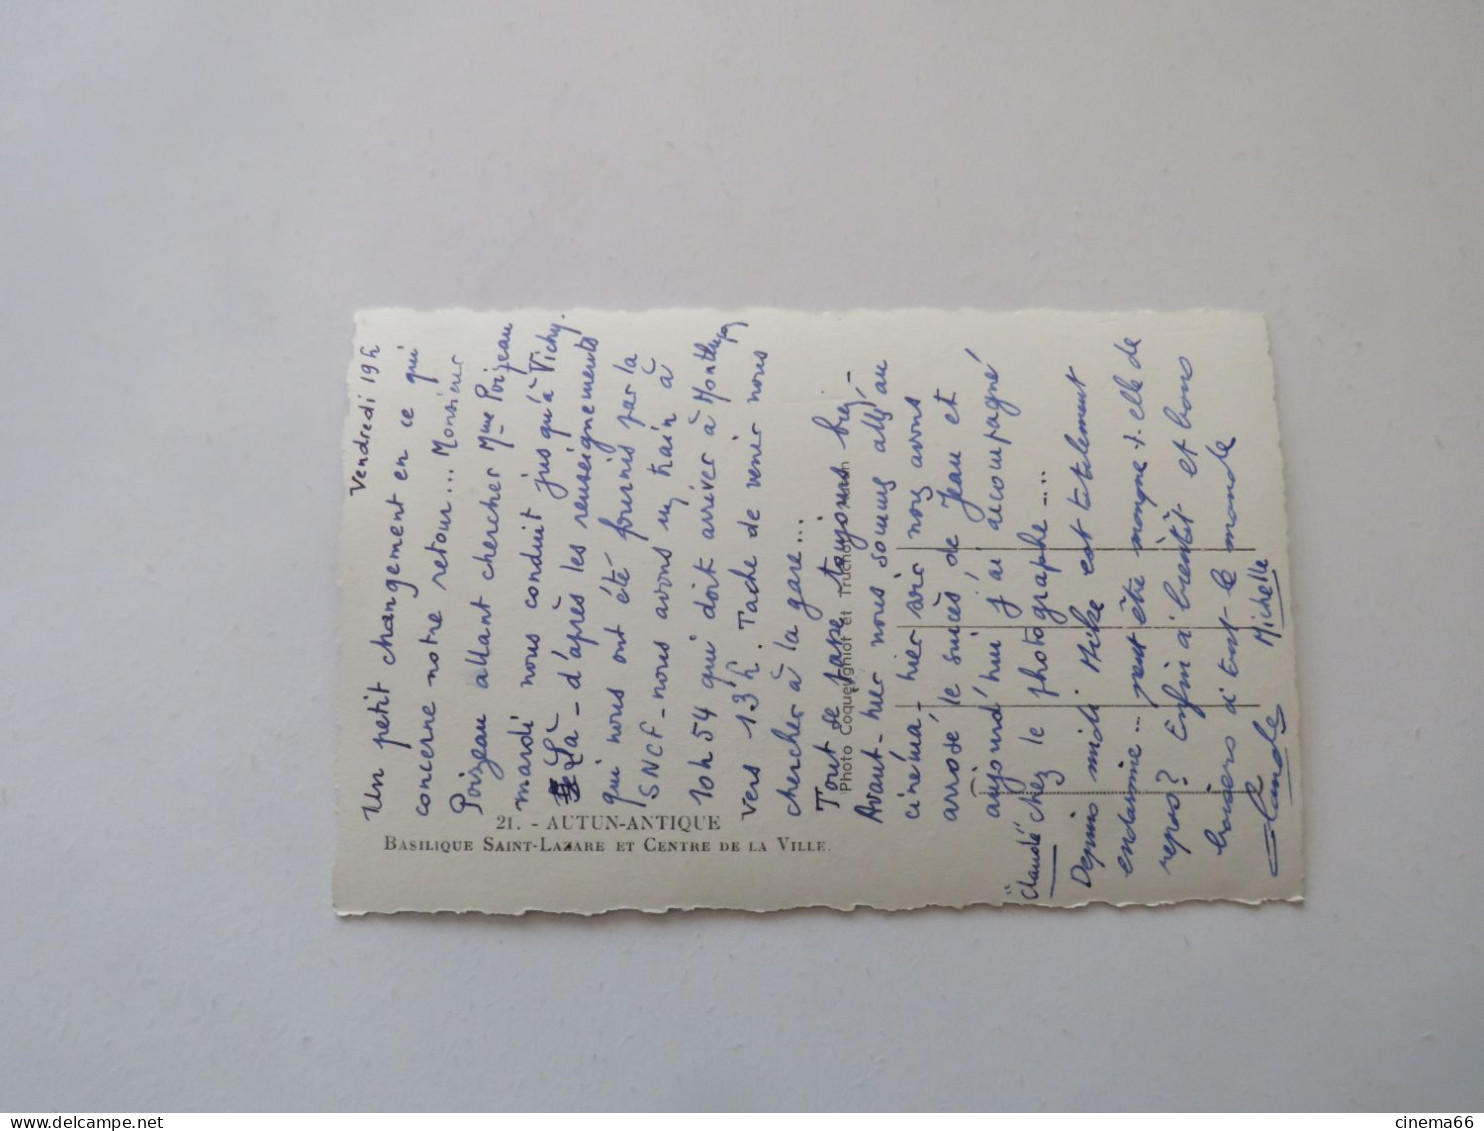 Vendredi 19h
Un petit changement en ce qui
concerne notre retour... Monsieur
Poizeau allant chercher Mme Poizeau
mardi nous conduit jusqu'à Vichy.
Là - d'après les renseignements
qui nous ont été fournis par la
SNCF - nous avons un train à
10h54 qui doit arriver à Montluçon
vers 13h. Tache de venir nous
chercher à la gare...
Tout se tape toujours bien -
Avant-hier nous sommes allés au
cinéma - hier soir nous avons
arrosé le succès de Jean et
aujourd'hui j'ai accompagné
"Claude" chez le photographe....
Depuis midi Mike est totalement
endormie... peut être manque t-elle de
repos? Enfin à bientôt et bons
baisers à tout le monde
Claude Michelle
21. - AUTUN-ANTIQUE
BASILIQUE SAINT-LAZARE ET CENTRE DE LA VILLE.
Photo Coqueugniot et Truchot
cinema66